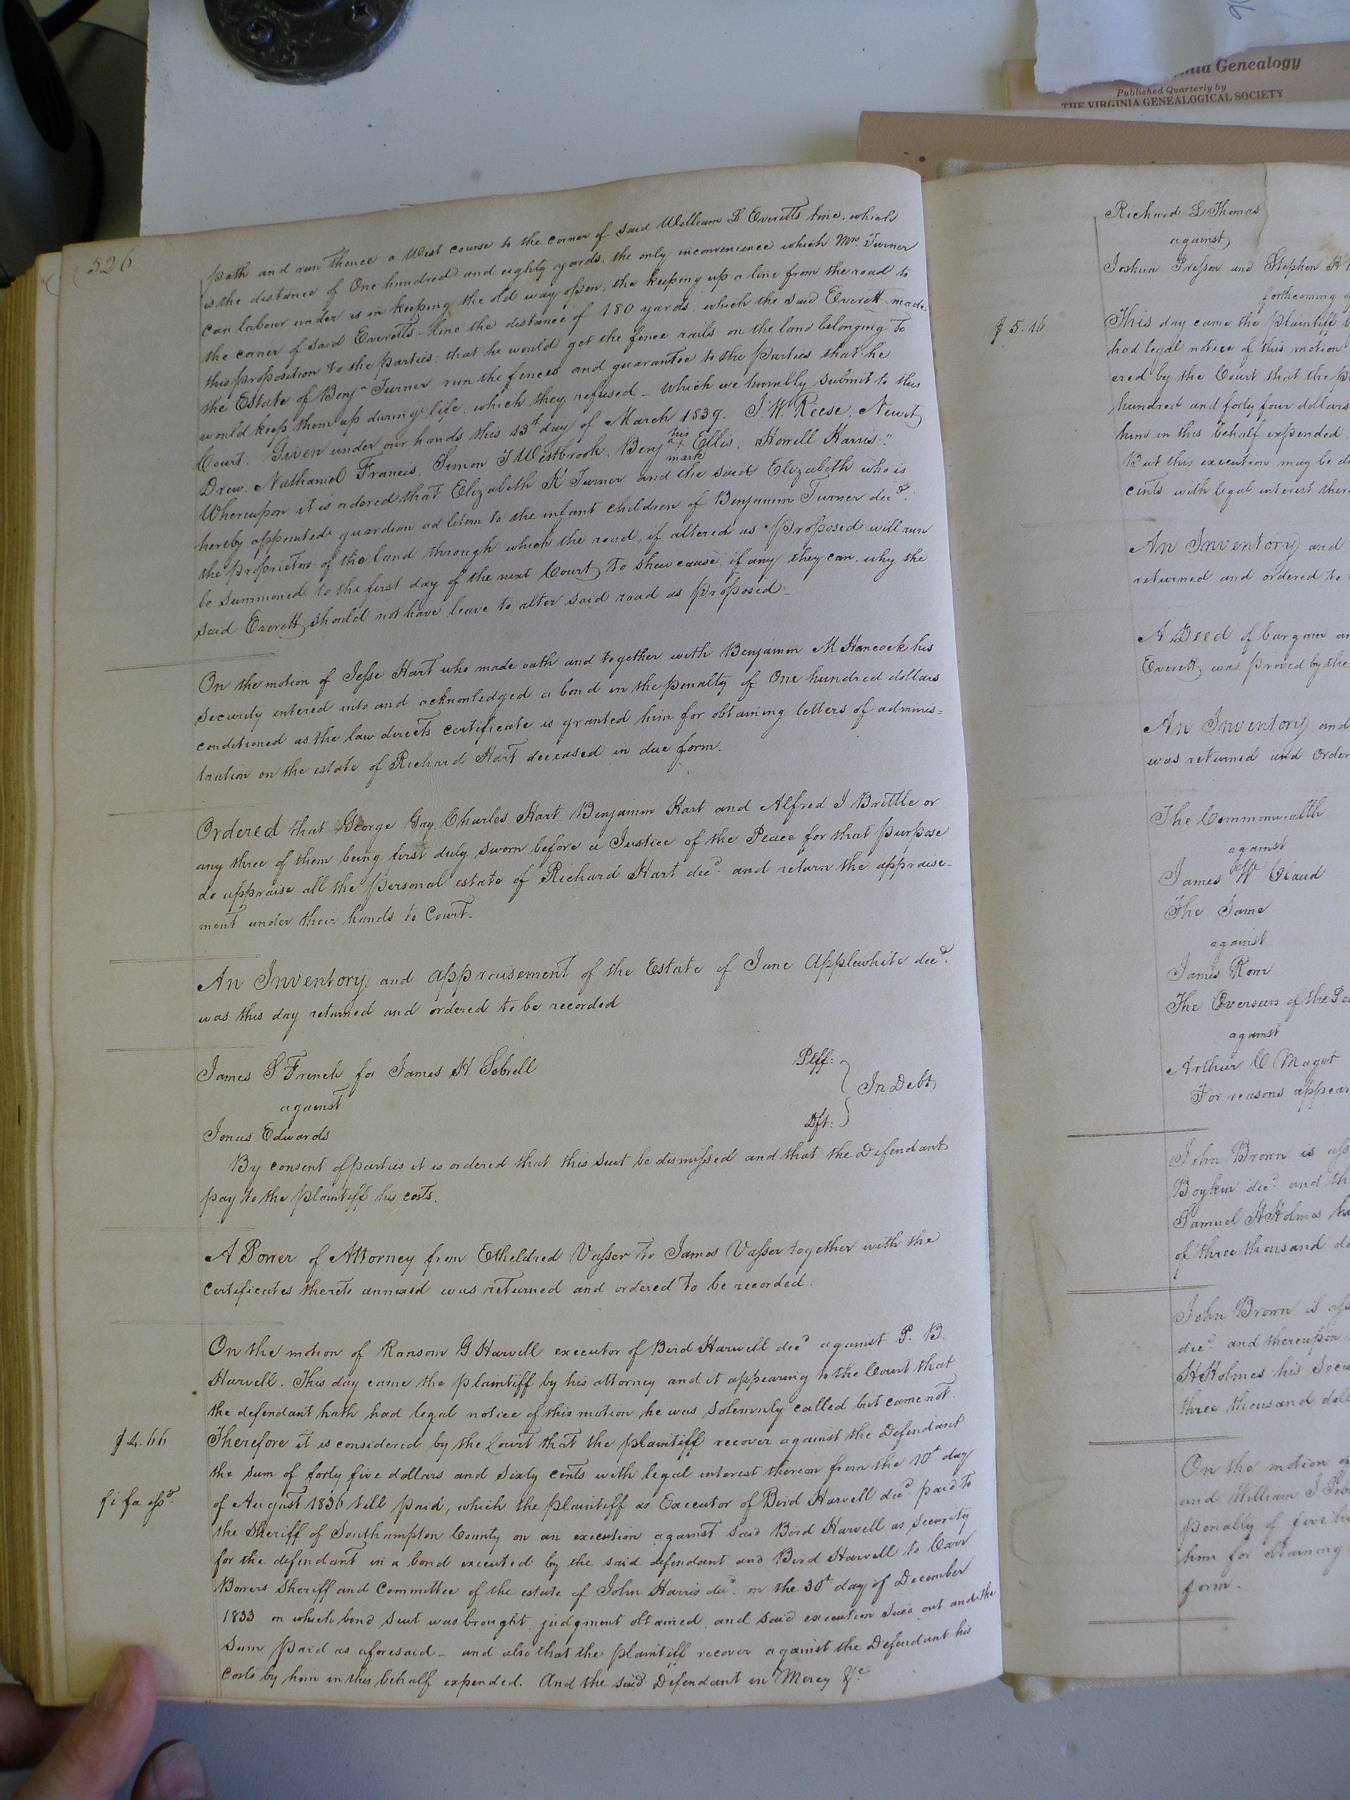 Genealogy
Published Quarterly by
THE VIRGINIA GENEALOGICAL SOCIETY
326
path and run thence a West course to the corner of said William B Everetts line, which
is the distance of One hundred and eighty yards, the only inconvenience which Mrs Turner
can labour under is in keeping the old way open, the keeping up a line from the road to
the corner of said Everetts line the distance of 180 yards, which the said Everett made
this proposition to the parties; that he would get the fence rails on the land belonging to
the Estate of Benjn Turner run the fences and guarantee to the parties that he
would keep them up during life, which they refused — which we humbly submit to this
Court. Given under our hands this 13th day of March 1839. J. W. Reese, Newit
Drew, Nathaniel Francis, Simon T Westbrook, Benj his mark Ellis, Howell Harris."
Whereupon it is ordered that Elizabeth K Turner and the said Elizabeth who is
hereby appointed guardian ad litem to the infant children of Benjamin Turner decd
the proprietors of the land through which the road, if altered as proposed will run
be summoned to the first day of the next Court, to shew cause, if any they can, why the
said Everett should not have leave to alter said road as proposed —
On the motion of Jesse Hart who made oath and together with Benjamin M Hancock his
security entered into and acknowledged a bond in the penalty of One hundred dollars
conditioned as the law directs certificate is granted him for obtaining letters of adminis=
tration on the estate of Richard Hart deceased in due form.
Ordered that George Gay, Charles Hart, Benjamin Hart and Alfred J Brittle or
any three of them being first duly sworn before a Justice of the Peace for that purpose
do appraise all the personal estate of Richard Hart decd and return the appraise-
ment under their hands to Court.
An Inventory and appraisement of the Estate of Jane Applewhite decd
was this day returned and ordered to be recorded
James S French for James H Sebrell Plff:
against In Debt
Jonas Edwards Dft:
By consent of parties it is ordered that this suit be dismissed and that the Defendant
pay to the plaintiff his costs.
A Power of Attorney from Etheldred Vasser to James Vasser together with the
certificates thereto annexed was returned and ordered to be recorded.
On the motion of Ransom G Harvell executor of Bird Harvell decd against P. B.
Harvell. This day came the plaintiff by his attorney and it appearing to the Court that
the defendant hath had legal notice of this motion he was solemnly called but came not.
$4.66
Therefore it is considered by the Court that the plaintiff recover against the Defendant
the sum of forty five dollars and sixty cents with legal interest thereon from the 10th day
fi fa issd
of August 1836 till paid, which the plaintiff as Executor of Bird Harvell decd paid to
the Sheriff of Southampton County on an execution against said Bird Harvell as security
for the defendant in a bond executed by the said defendant and Bird Harvell to Carr
Bowers Sheriff and Committee of the estate of John Harris decd on the 30th day of December
1833 on which bond suit was brought, judgment obtained, and said execution sued out and the
sum paid as aforesaid — and also that the plaintiff recover against the Defendant his
costs by him in this behalf expended. And the said Defendant in Mercy &c
Richard L Thomas
against
Joshua and Stephen
forthcoming
$5.16
This day came the plaintiff
had legal notice of this motion
ered by the Court that the
hundred and forty four dollars
him in this behalf expended
But this execution may be
cents with legal interest
An Inventory and
returned and ordered to
A Deed of bargain
Everett was proved by the
An Inventory and
was returned and
The Commonwealth
against
James W Claud
The Same
against
James
The Overseers of the
against
Arthur C
For reasons
John Brown is
Boykin decd and
Samuel H Holmes
of three thousand
John Brown is
decd and thereupon
H Holmes his
three thousand
On the motion
and William J
penalty of five
him for obtaining
form.